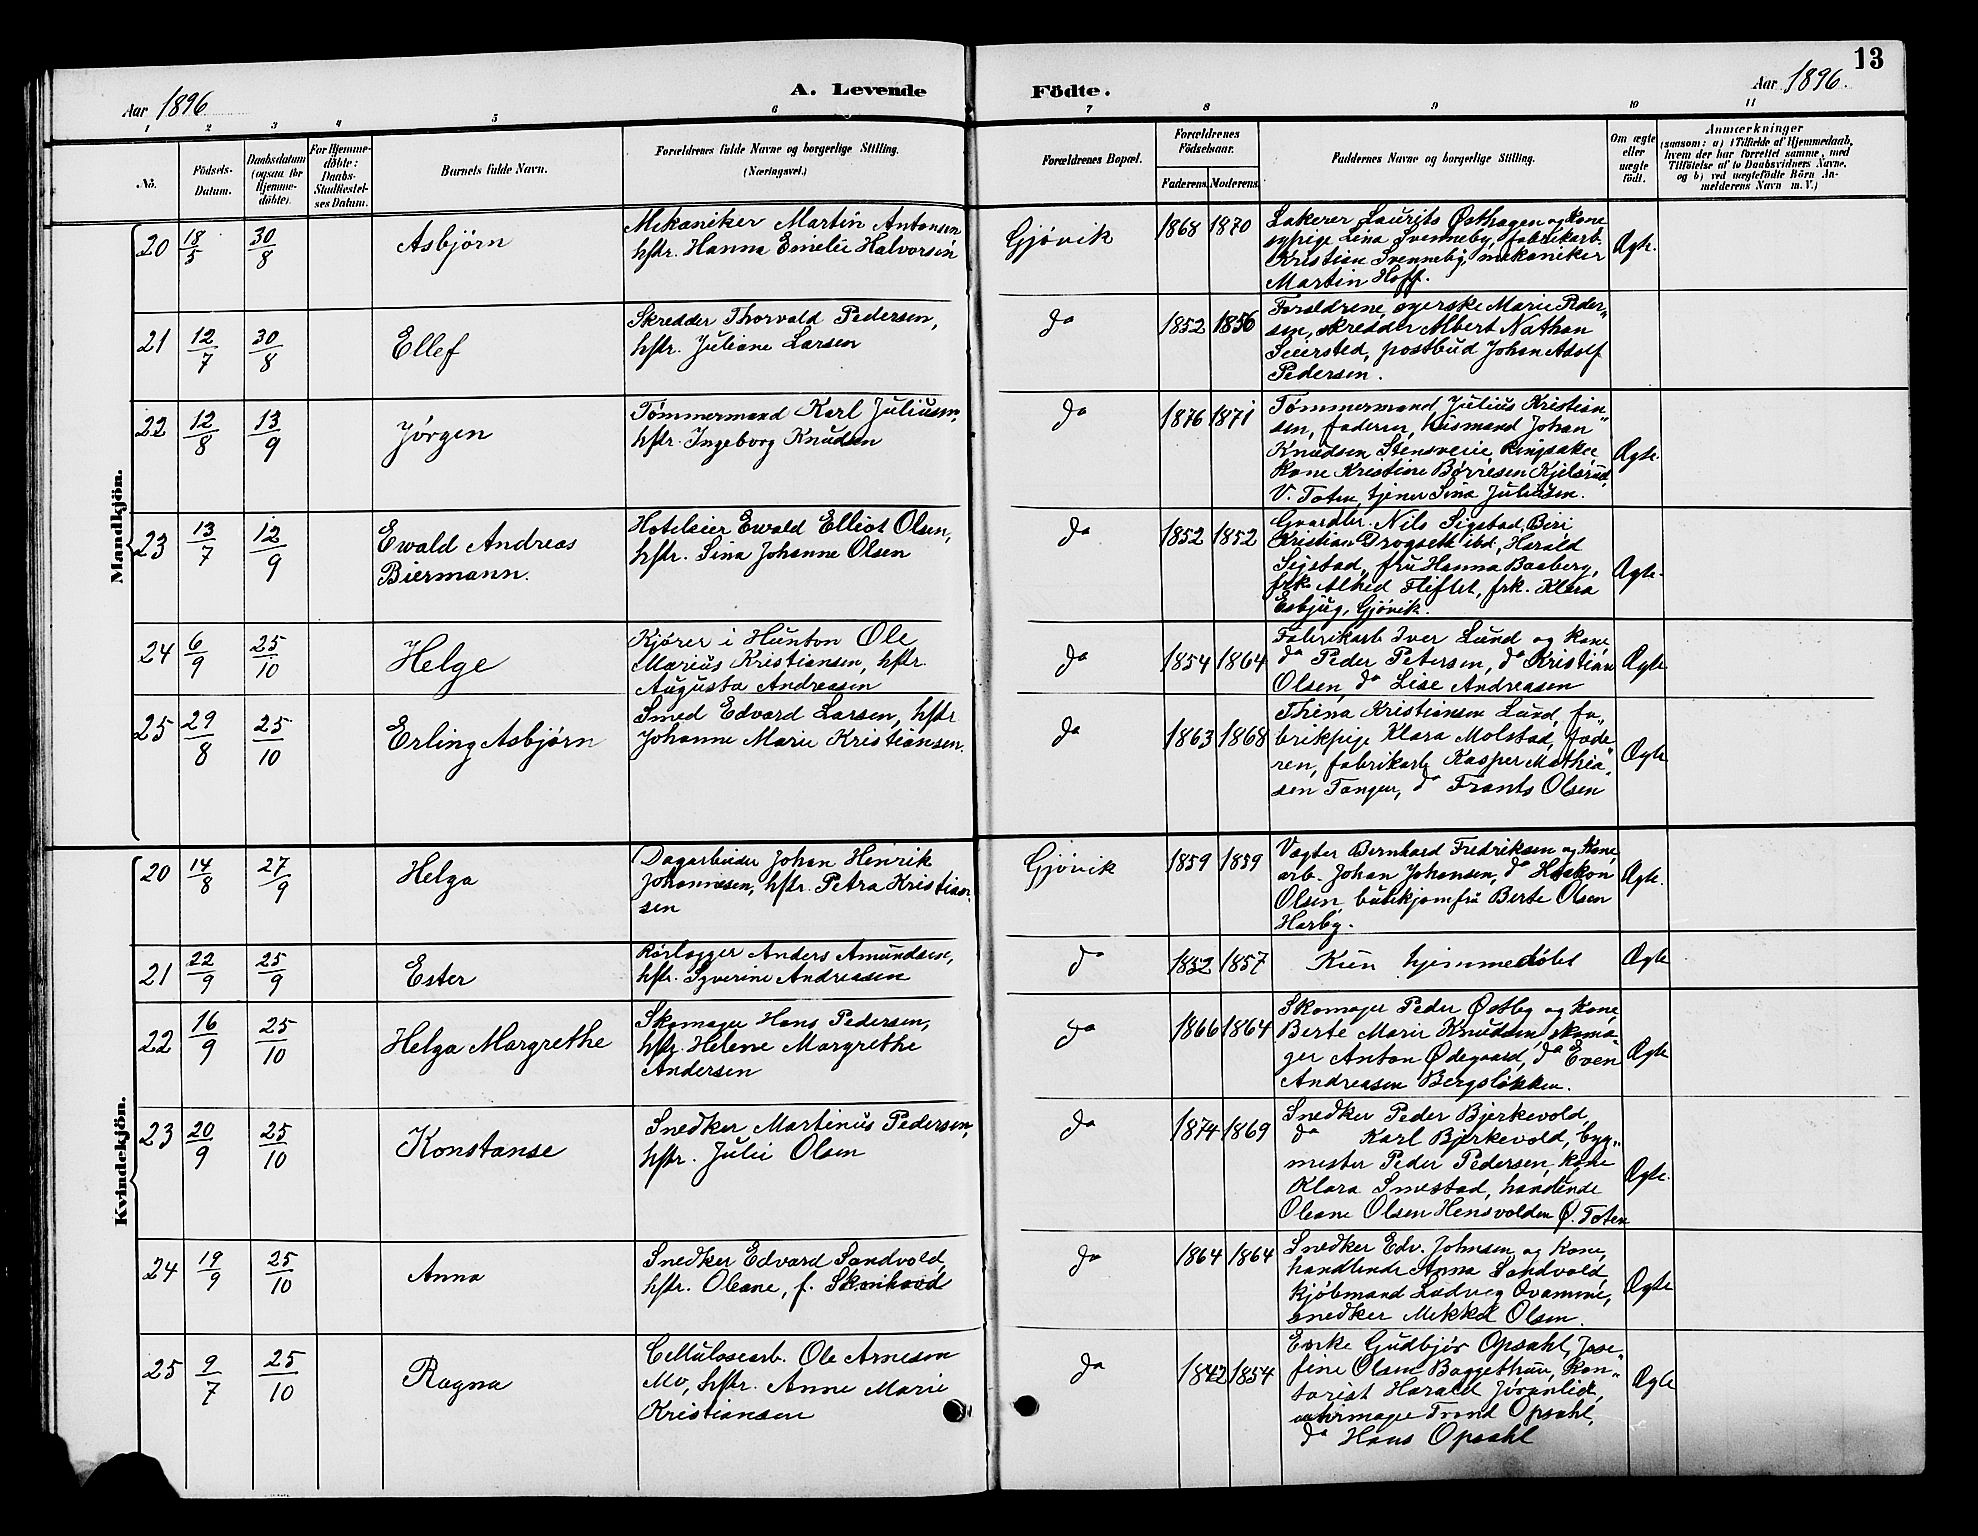 13
Aar 1896.
A. Levende Fødte.
Aar 1896.
1 2 3 4 5 6 7 8 9 10 11
No.
Fødsels-Datum.
Daabsdatum (ogsaa for Hjemmedøbte).
For Hjemmedøbte: Daabs-Stadfæstelses Datum.
Barnets fulde Navn.
Forældrenes fulde Navne og borgerlige Stilling.
(Næringsvei.)
Forældrenes Bopæl.
Forældrenes Fødselsaar.
Faderens. Moderens.
Faddernes Navne og borgerlige Stilling.
Om ægte eller uægte født.
Anmærkninger
(saasom: a) i Tilfælde af Hjemmedaab,
hvem der har forrettet samme, med
Tilføielse af to Daabsvidners Navne,
og b) ved uægtefødte Børn An-
melderens Navn m. V.)
Mandkjön.
20 18/5 30/8 Asbjörn
Mekaniker Martin Antonsen
hstr. Hanna Emelie Halvorsen
Gjövik 1868 1870
Lakerer Laurits Østhagen og Kone
sypige Lina Svenneby, fabrikarb.
Kristian Svenneby, mekaniker
Martin Hoff.
Ægte.
21 12/7 30/8 Ellef
Skredder Thorvald Pedersen,
hstr. Juliane Larsen
do 1852 1856
Forældrene, syerske Marie Peder-
sen, skredder Albert Nathan
Seiersted, postbud Johan Adolf
Pedersen.
22 12/8 13/9 Jörgen
Tømmermand Karl Juliusen,
hstr. Ingeborg Knudsen
do 1876 1871
Tømmermand Julius Kristian-
sen, faderen, husmand Johan
Knudsen Stensveie, Ringsaker
Kone Kristine Børresen Kjelsrud,
V. Toten, tjener Sina Juliusen.
Ægte.
23 13/7 12/9 Ewald Andreas
Biermann.
Hoteleier Ewald Elliot Olsen,
hstr. Sina Johanne Olsen
do 1852 1852
Gaardbr. Nils Sigstad, Biri
Kristian Drogseth ibd., Harald
Sigstad, fru Hanna Baaberg,
frk. Alhed Fliflet, frk. Klara
Esbjug, Gjövik.
Ægte.
24 6/9 25/10 Helge
Kjörer i Hunton Ole
Marius Kristiansen, hstr.
Augusta Andreasen
do 1854 1864
Fabrikarb Iver Lund og Kone,
do Peder Petersen, do Kristian
Olsen, do Lise Andreasen
Ægte
25 29/8 25/10 Erling Asbjørn
Smed Edvard Larsen, hstr
Johanne Marie Kristiansen.
do 1863 1868
Thina Kristiansen Lund, fa-
brikpige Klara Molstad, fade-
ren, fabrikarb Kasper Mathia-
sen Tangen, do Frants Olsen
Ægte
Kvindekjön.
20 14/8 27/9 Helga
Dagarbeider Johan Henrik
Johannesen, hstr. Petra Kristian-
sen
Gjövik 1859 1859
Vegter Bernhard Fredriksen og Kone,
arb. Johan Johansen, do Haakon
Olsen, butikjomfru Berte Olsen
Harby.
Ægte.
21 22/9 25/9 Ester
Rørlægger Anders Amundsen,
hstr. Syverine Andreasen
do 1852 1857
Kun hjemmedøbt
Ægte
22 16/9 25/10 Helga Margrethe
Skomager Hans Pedersen,
hstr. Helene Margrethe
Andersen
do 1866 1864
Skomager Peder Østby og Kone,
Berte Marie Knudsen, skoma-
ger Anton Ødegaard, do Even
Andreasen Bergsløkken.
Ægte
23 20/9 25/10 Konstanse
Snedker Martinus Pedersen,
hstr. Julie Olsen
do 1874 1869
Snedker Peder Bjerkevold,
do Karl Bjerkevold, byg-
mester Peder Pedersen, kone
Klara Smestad, handlende
Oleane Olsen Hensvolden Ø. Toten
Ægte.
24 19/9 25/10 Anna
Snedker Edvard Sandvold,
hstr. Oleane, f.
do 1864 1864
Snedker Edv. Johnsen og Kone,
handlende Anna Sandvold,
kjøbmand Ludvig Ovamme,
snedker Mikkel Olsen.
Ægte
25 9/7 25/10 Ragna
Cellulosearb. Ole Arnesen
Mo, hstr. Anne Marie
Kristiansen
do 1842 1854
Enke Gudbjør Opsahl, Jose-
fine Olsen Baggethun, Kon-
torist Harald Jøranlid,
uhrmager Trond Opsahl,
do Hans Opsahl
Ægte